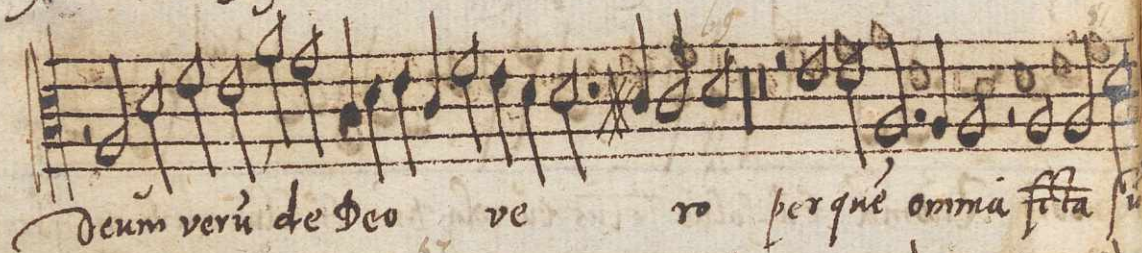 Deum verũ de Deo ve ro per quẽ omnia fcta sũ